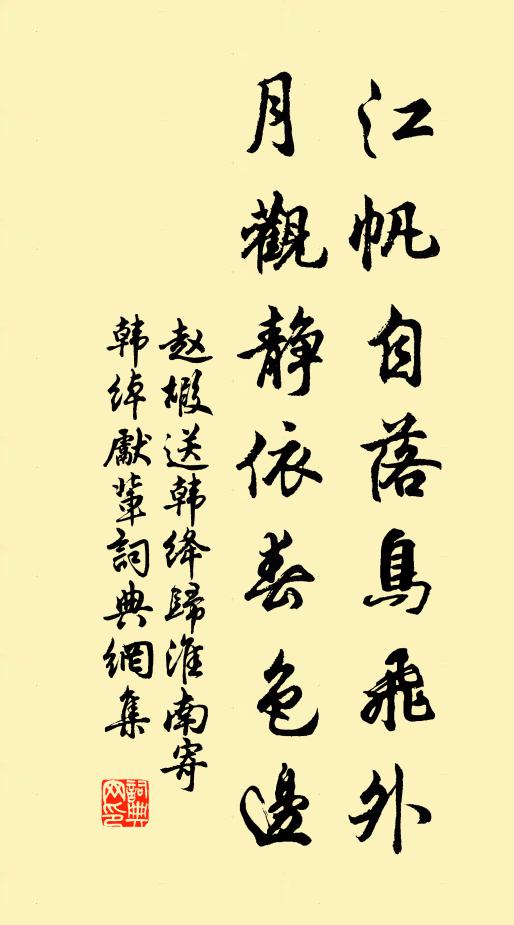 江帆自落鳥飛外
月觀静依春色邊
赵嘏送韩绛歸淮南寄
韩绰獻輩詞典網集
詞典
网印